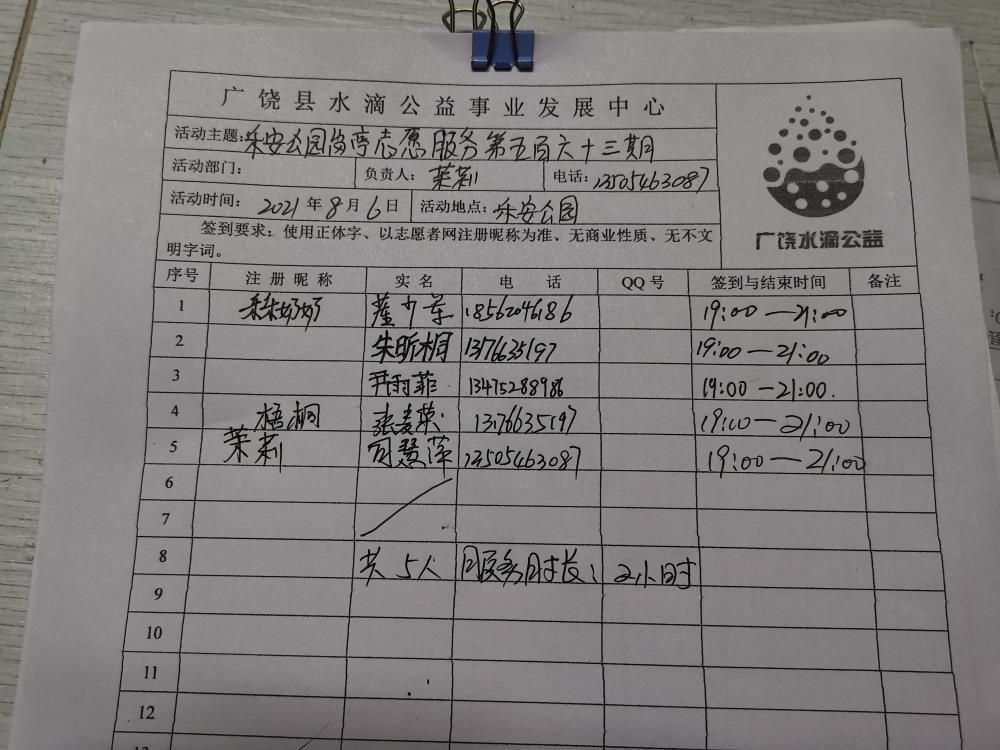 广饶县水滴公益事业发展中心
活动主题: 乐安公园岗亭志愿服务第五百六十三期
活动部门: 负责人: 茉莉 电话: 13505463087
活动时间: 2021年8月6日 活动地点: 乐安公园
签到要求: 使用正体字、以志愿者网注册昵称为准、无商业性质、无不文
明字词。
广饶水滴公益
序号 注册昵称 实名 电话 QQ号 签到与结束时间 备注
1 18562046186 19:00—21:00
2 朱昕桐 1376635197 19:00—21:00
3 尹雨菲 13475288986 19:00—21:00.
4 梧桐 1376635197 19:00—21:00
5 茉莉 司慧萍 13505463087 19:00—21:00
6
7
8 共5人 服务时长: 2小时
9
10
11
12
13